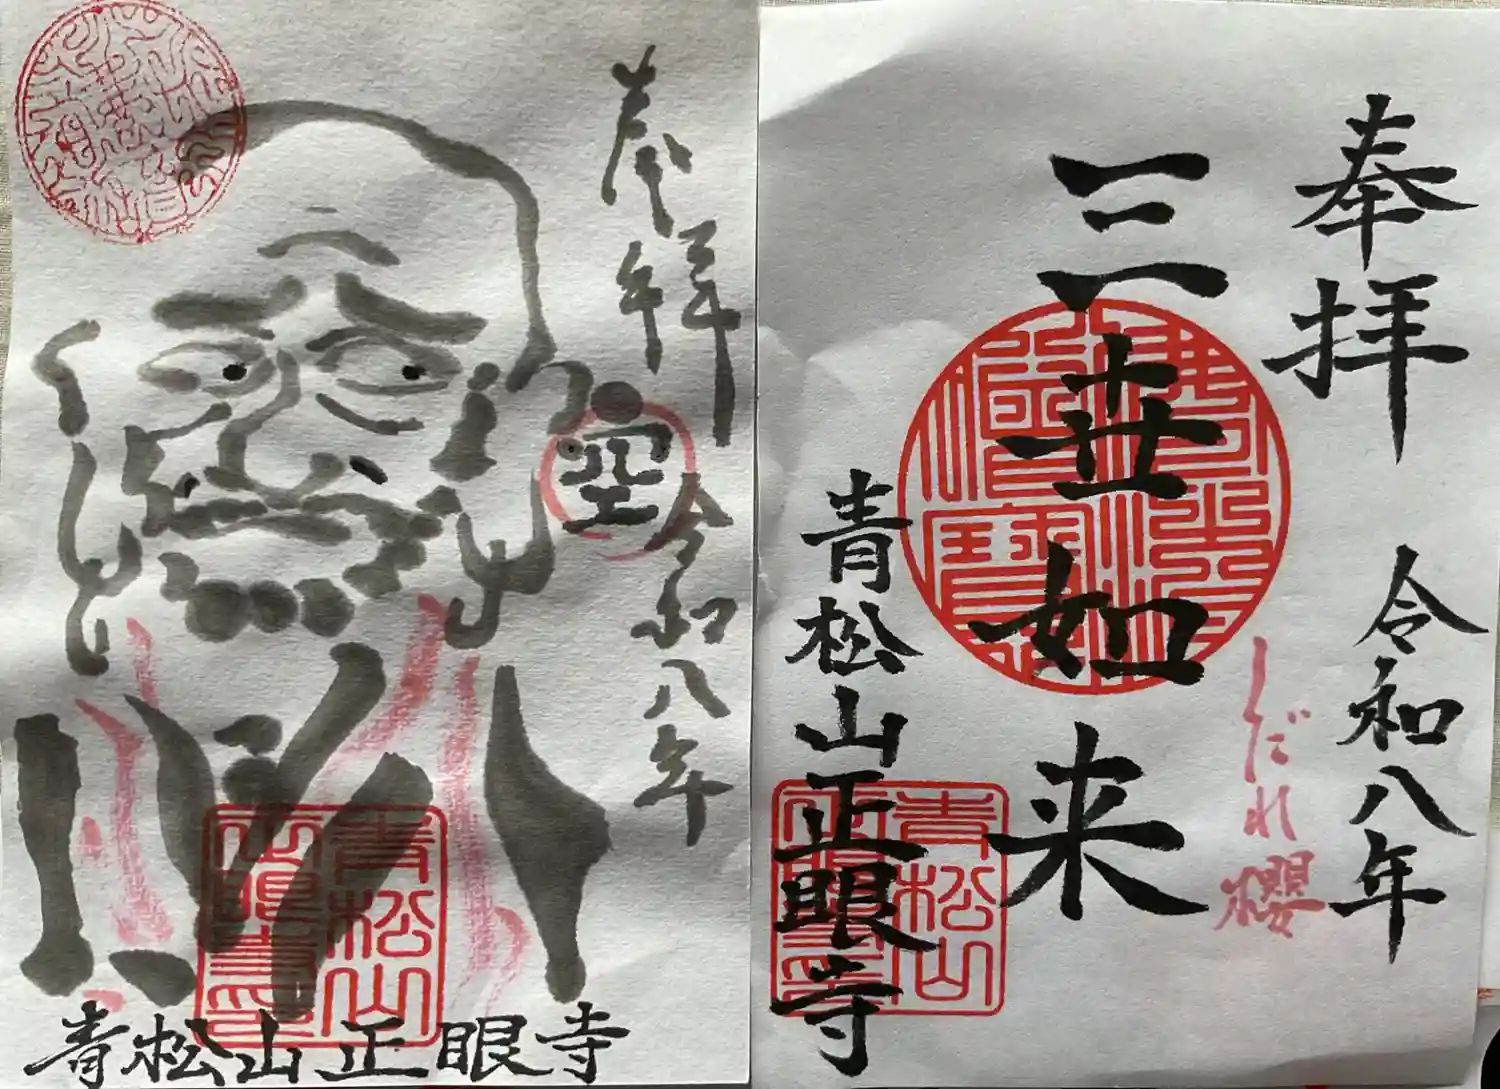 奉拝
令和八年
空
青松山正眼寺
青松山
正眼寺印
奉拝
令和八年
しだれ櫻
三世如来
青松山正眼寺
佛法僧寶
青松山
正眼寺印